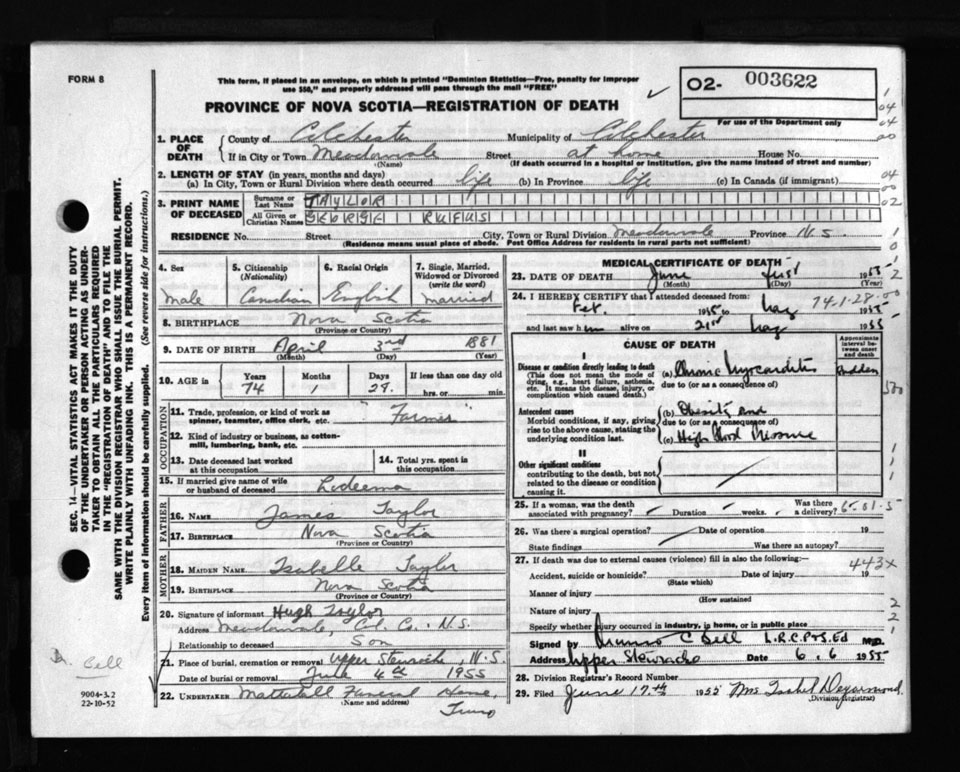 FORM 8
This form, if placed in an envelope, on which is printed "Dominion Statistics—Free, penalty for improper
use $50," and properly addressed will pass through the mail "FREE"
PROVINCE OF NOVA SCOTIA—REGISTRATION OF DEATH
02- 003622
For use of the Department only
1. PLACE OF DEATH
County of Colchester Municipality of Colchester
If in City or Town Meadowvale Street at home House No.
(Name) (If death occurred in a hospital or institution, give the name instead of street and number)
2. LENGTH OF STAY (in years, months and days)
(a) In City, Town or Rural Division where death occurred life (b) In Province life (c) In Canada (if immigrant)
3. PRINT NAME OF DECEASED
Surname or Last Name TAYLOR
All Given or Christian Names GEORGE RUFUS
RESIDENCE No. Street City, Town or Rural Division Meadowvale Province N.S.
(Residence means usual place of abode. Post Office Address for residents in rural parts not sufficient)
4. Sex male
5. Citizenship (Nationality) Canadian
6. Racial Origin English
7. Single, Married, Widowed or Divorced (write the word) married
8. BIRTHPLACE Nova Scotia
(Province or Country)
9. DATE OF BIRTH April 3rd 1881
(Month) (Day) (Year)
10. AGE in Years 74 Months 1 Days 29. If less than one day old
hrs. or min.
OCCUPATION
11. Trade, profession, or kind of work as spinner, teamster, office clerk, etc. "Farmer"
12. Kind of industry or business, as cotton-mill, lumbering, bank, etc.
13. Date deceased last worked at this occupation
14. Total yrs. spent in this occupation
15. If married give name of wife or husband of deceased
FATHER
16. NAME James Taylor
17. BIRTHPLACE Nova Scotia
(Province or Country)
MOTHER
18. MAIDEN NAME Isabelle Taylor
19. BIRTHPLACE Nova Scotia
(Province or Country)
20. Signature of informant Hugh Taylor
Address Meadowvale, Col. Co. N.S.
Relationship to deceased Son
21. Place of burial, cremation or removal Upper Stewiacke, N.S.
Date of burial or removal June 4th 1955
22. UNDERTAKER Mattatall Funeral Home,
(Name and address) Truro
MEDICAL CERTIFICATE OF DEATH
23. DATE OF DEATH June first 1955
(Month) (Day) (Year)
24. I HEREBY CERTIFY that I attended deceased from:
Feb. 1955 to May 1955
74-1-28-00
and last saw him alive on 21st May 1955
CAUSE OF DEATH
Approximate interval between onset and death
I
Disease or condition directly leading to death
(This does not mean the mode of dying, e.g., heart failure, asthenia, etc. It means the disease, injury, or complication which caused death.)
(a) Chronic Myocarditis sudden
due to (or as a consequence of)
Antecedent causes
Morbid conditions, if any, giving rise to the above cause, stating the underlying condition last.
(b) Obesity and
due to (or as a consequence of)
(c) High Blood Pressure
II
Other significant conditions
contributing to the death, but not related to the disease or condition causing it.
25. If a woman, was the death associated with pregnancy? Duration weeks. Was there a delivery?
26. Was there a surgical operation? Date of operation 19
State findings Was there an autopsy?
27. If death was due to external causes (violence) fill in also the following:—
443x
Accident, suicide or homicide? Date of injury 19
(State which)
Manner of injury
(How sustained
Nature of injury
Specify whether injury occurred in industry, in home, or in public place
Signed by Munro C Bell L.R.C.P.&S. Ed M.D.
Address Upper Stewiacke Date 6. 6 1955
28. Division Registrar's Record Number
29. Filed June 17th 1955 Mrs. Isabel
(Division Registrar)
SEC. 14—VITAL STATISTICS ACT MAKES IT THE DUTY
OF THE UNDERTAKER OR PERSON ACTING AS UNDER-
TAKER TO OBTAIN ALL THE PARTICULARS REQUIRED
IN THE "REGISTRATION OF DEATH" AND TO FILE THE
SAME WITH THE DIVISION REGISTRAR WHO SHALL ISSUE THE BURIAL PERMIT.
WRITE PLAINLY WITH UNFADING INK. THIS IS A PERMANENT RECORD.
Every item of information should be carefully supplied. (See reverse side for instructions.)
Dr. Bell
9004-3.2
22-10-52